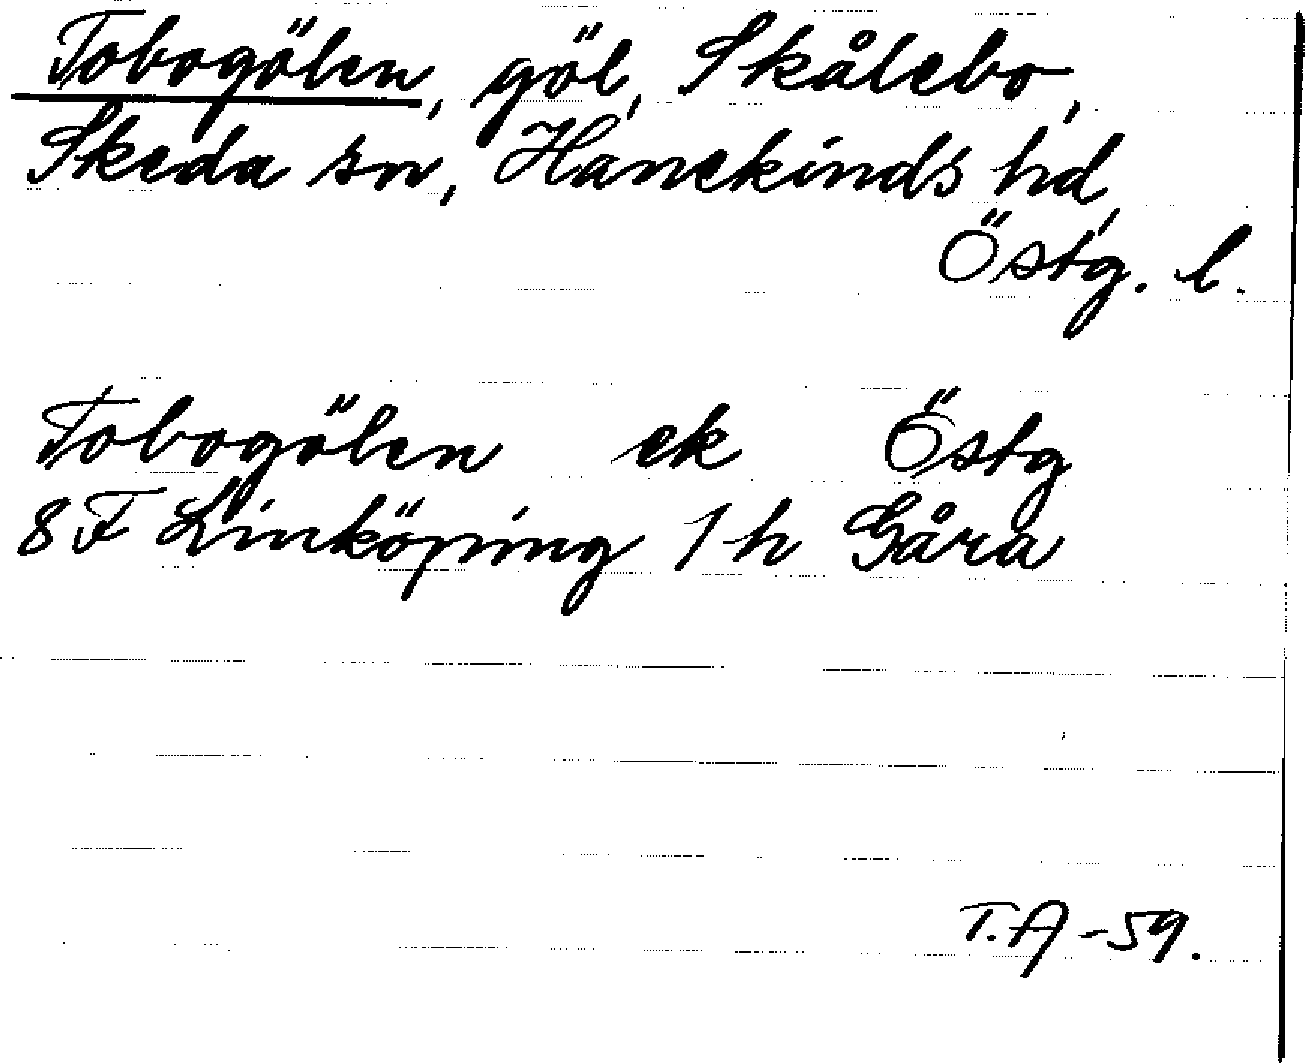 Tobogölen, göl, Skålebo,
Skeda sn, Hanekinds hd,
Östg. l.
Tobogölen ek Östg
8F Linköping 1h Gåra
T.A -59.